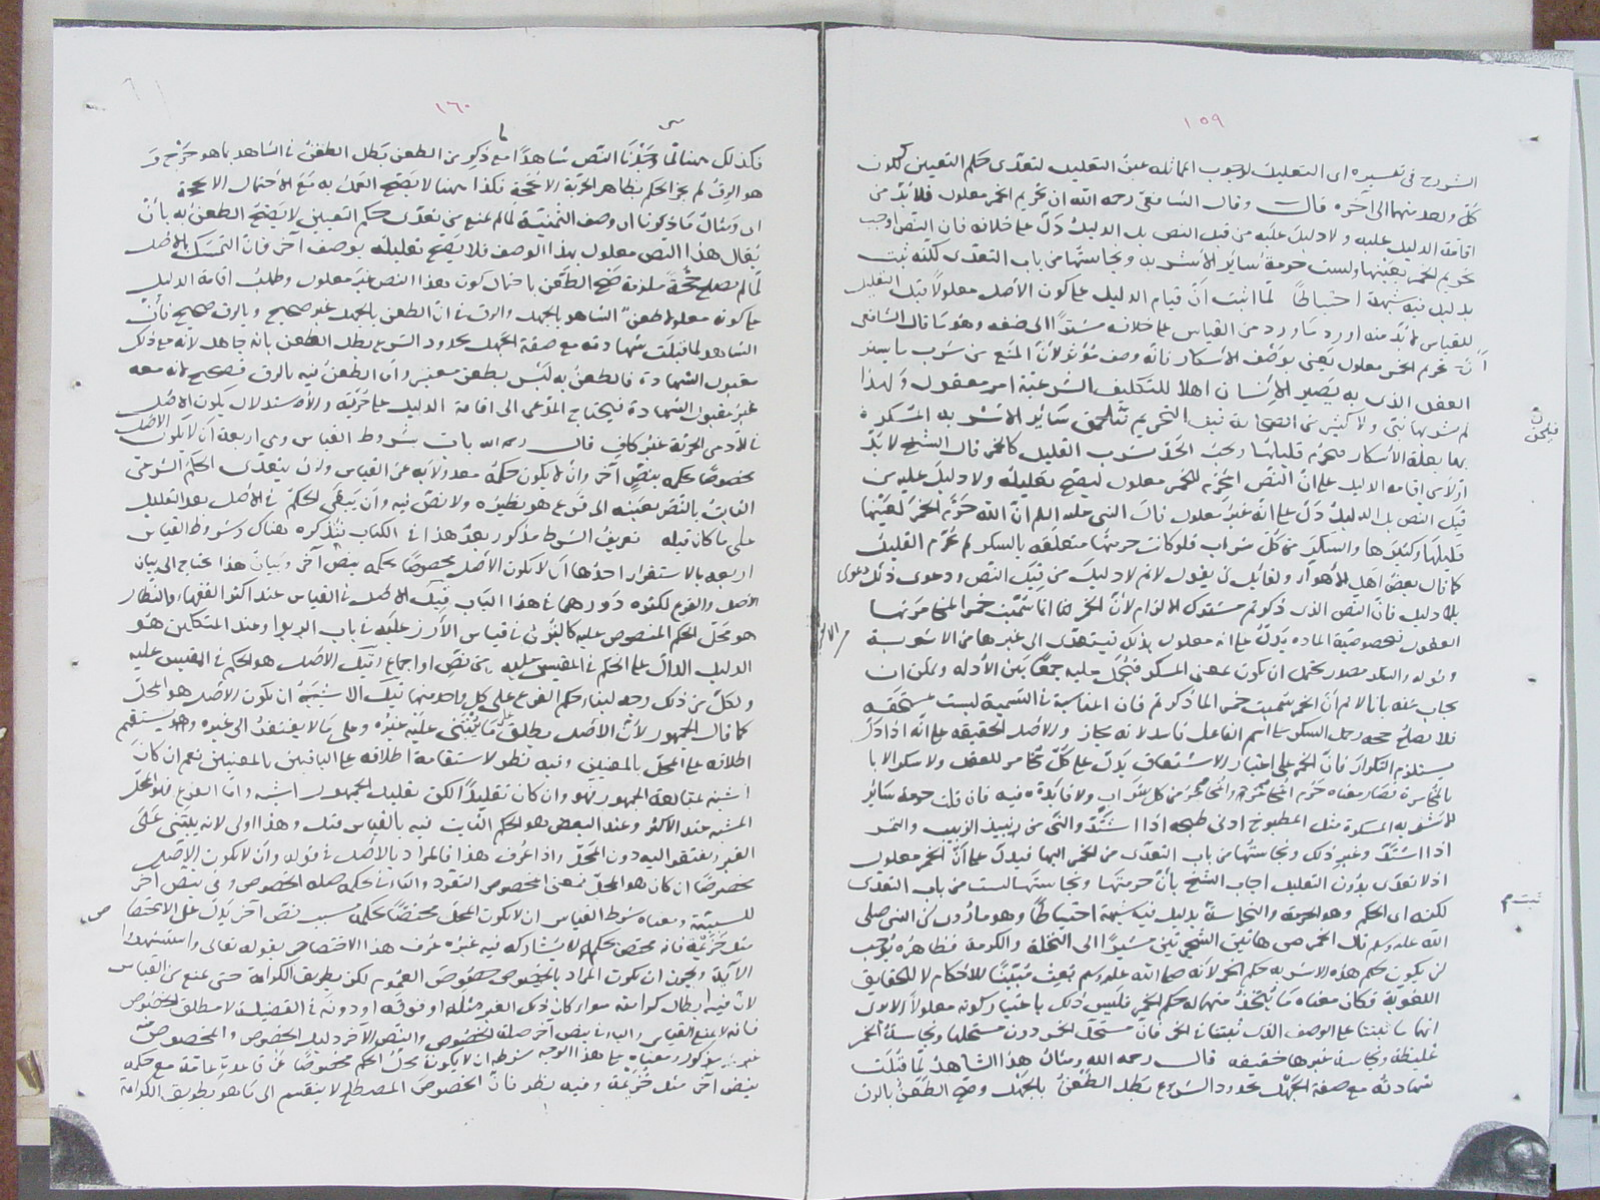 ١٥٩
الشروح فى تفسيره اى التعليل لوجوب المماثلة عين التعليل لتعدّى حكم التعيين لكون
كلّ واحد منهما الى آخره قالـــ وقال الشافعى رحمه الله ان تحريم الخمر معلول فلا بدّ من
اقامة الدليل عليه ولا دليل عليه من قبل النص بل الدليل دلّ على خلافه فان النصّ اوجب
تحريم الخمر بعينها وليست حرمة سائر الاشربة ونجاستها من باب التعدى لكنّه ثبت
بدليل فيه شبهة احتياطاً لمّا اثبت انّ قيام الدليل على كون الاصل معلولاً قبل التعليل
للقياس لا بدّ منه اورد ما ورد من القياس على خلافه مسنداً الى ضعفه وهو ما قال الشافعى
انّ تحريم الخمر معلول يعنى بوصف الاسكار فانّه وصف مؤثر لانّ المنع عن شرب ما يستر
العقل الذى به يصير الانسان اهلا للتكليف الشرعيّة امر معقول ولهذا
لم يشربها نبى ولا كثير من الصحابة قبل التحريم فتلحق سائر الاشربة المسكرة
بها بعلة الاسكار فيحرم قليلها ويجب الحدّ بشرب القليل كالخمر قال الشيخ لا بدّ
اوّلا من اقامة الدليل على انّ النصّ المحرّم للخمر معلول ليصح تعليله ولا دليل عليه من
قبل النص بل الدليل دلّ على انه غير معلول قال النبى عليه السلم انّ الله حرّم الخمر لعينها
قليلها وكثيرها والسكر من كلّ شراب فلو كانت حرمتها متعلقة بالسكر لم يحرم القليل
كما قال بعض اهل الاهواء ولقائل ان يقول لا نم لا دليل من قبل النصّ ودعوى ذلك دعوى
بلا دليل فانّ النصّ الذى ذكرتم مشترك الالزام لانّ الخمر لما انما سمّيت خمراً لمخامرتها
العقول فخصوصيّة المادة يدلّ على انه معلول بذلك فيتعدّى الى غيرها من الاشربة
وقوله والسكر مصدر يحتمل ان يكون بمعنى المسكر فيحمل عليه جمعاً بين الأدلة ويمكن ان
يجاب عنه بانا لا نم انّ الخمر سميت خمراً لما ذكرتم فان المناسبة فى التسمية ليست مستحقه
فلا يصلح حجه وحمل السكر على اسم الفاعل فاسد لانه مجاز والاصل الحقيقة على انّه اذا ذاك
يستلزم التكرار فانّ الخمر على اعتبار الاشتقاق يدلّ على كلّ مخامر للعقل ولا سكر الا با
لمخامرة فصار معناه حرم المخامر والمخامر من كل شراب ولا فائدة فيه فان قلت حرمة سائر
الاشربة المسكرة مثل المطبوخ ادنى طبخه اذا اشتدّ والنّى من نبيذ الزبيب والتمر
اذا اشتدّ وغير ذلك ونجاستها من باب التعدّى من الخمر اليها فيدلّ على انّ الخمر معلول
اذ لا تعدّى بدون التعليل اجاب الشيخ بأنّ حرمتها ونجاستها ليست من باب التعدّى
لكنه اى الحكم وهو الحرمة والنجاسة بدليل فيه شبهة احتياطاً وهو ما روى عن النبى صلى
الله عليه وسلم قال الخمر من هاتين الشجرتين مشيراً الى النخلة والكرمة فظاهره يوجب
ان يكون حكم هذه الاشربة حكم الخمر لانه صلى الله عليه وسلم بعث مبيّنا للأحكام لا للحقايق
اللغوية فكان معناه ما يتخذ منهما له حكم الخمر فليس ذلك باعتبار كونه معلولا الا ترى
انها ما ثبتتا على الوصف الذى ثبتتا فى الخمر فانّ مستحلّ الخمر دون مستحلها ونجاسة الخمر
غليظة ونجاسة غيرها خفيفه قالـــ رحمه الله ومثال هذا الشاهد لمّا قُبلت
شهادته مع صفة الجهل بحدود الشرع بطل الطعن بالجهل وصحّ الطعن بالرق
فيلحق
ثبت م
١٦٠
فكذلك ههنا لمّا وجدنا النصّ شاهداً مع ما ذكر من الطعن بطل الطعن فى الشاهد بما هو جرح و
هو الرق لم يجز الحكم بظاهر الحرّيّة الا بحجة فكذا ههنا لا يصحّ العمل به مع الاحتمال الا بحجة
اى ومثال ما ذكرنا ان وصف الثمنيّة لما لم يمنع من تعدّى حكم التعيين لا يصحّ الطعن به بأنْ
يقال هذا النصّ معلول بهذا الوصف فلا يصح تعليله بوصف آخر فانّ التمسّك بالاصل
لما لم يصلح حجّة ملزمة صحّ الطعن باحتمال كون هذا النص غير معلول وطلب اقامة الدليل
على كونه معلولا طعن الشاهد بالجهل والرق فى انّ الطعن بالجهل غير صحيح وبالرق صحيح فانّ
الشاهد لما قبلت شهادته مع صفة الجهل بحدود الشرع بطل الطعن بانه جاهل لانه مع ذلك
مقبول الشهادة فالطعن به ليس بطعن معتبر وامّا الطعن فيه بالرق فصحيح لانه معه
غير مقبول الشهادة فيحتاج المدّعى الى اقامة الدليل على حرّيته والاستدلال بكون الاصل
فى الآدمى الحريّة غير كاف قالـــ رحمه الله باب شروط القياس وهى اربعة ان لا يكون الاصل
مخصوصاً بحكمه بنصّ آخر وان لا يكون حكمه معدولا به عن القياس وان يتعدّى الحكم الشرعى
الثابت بالنصّ بعينه الى فرع هو نظيره ولا نصّ فيه وان يبقى الحكم فى الاصل بعد التعليل
على ما كان قبله تعريف الشرط مذكور بعد هذا فى الكتاب نذكره هناك وشروط القياس
اربعة بالاستقراء احدها ان لا يكون الاصل مخصوصاً بحكمه بنصّ آخر وبيان هذا يحتاج الى بيان
الاصل والفرع لكثرة دورهما فى هذا الباب قيل الاصل فى القياس عند اكثر الفقهاء والنظار
هو محلّ الحكم المنصوص عليه كالبُرّ فى قياس الارز عليه فى باب الربوا وعند المتكلمين هو
الدليل الدالّ على الحكم فى المقيس عليه من نصّ او اجماع وقيل الاصل هو الحكم فى المقيس عليه
ولكلّ من ذلك وجه لبناء حكم الفرع على كل واحد منهما قيل الاشبه ان يكون الاصل هو المحلّ
كما قال الجمهور لانّ الأصل يطلق على ما يبتنى عليه غيره وعلى ما لا يفتقر الى غيره وهو يستقيم
اطلاقه على المحلّ بالمعنيين وفيه نظر لاستقامة اطلاقه على الباقيين بالمعنيين نعم ان كان
اشبه لمتابعة الجمهور فهو وان كان تقليداً لكن تقليد الجمهور اشبه وامّا الفرع فهو المحلّ
المشبه عند الاكثر وعند البعض هو الحكم الثابت فيه بالقياس قيل وهذا اولى لانه يبتنى على
الغير ويفتقر اليه دون المحلّ واذا عُرف هذا فالمراد بالاصل فى قوله وان لا يكون الاصل
مخصوصاً ان كان هو المحلّ فمعنى المخصوص التفرد والباء فى بحكمه صلة الخصوص وفى بنصّ آخر
للسببيّة ومعناه شرط القياس ان لا يكون المحلّ مختصّا بحكمه بسبب نصّ آخر يدلّ على الاختصاص
مثل خزيمة فانه مختص بحكم لا يشاركه فيه غيره عُرف هذا الاختصاص بقوله تعالى واستشهدوا
الآية ويجوز ان يكون المراد بالخصوص خصوص العموم لكن بطريق الكرامة حتى يمنع من القياس
لانّ فيه ابطال كرامته سواء كان ذلك الغير مثله او فوقه او دونه فى الفضيلة لا مطلق الخصوص
فانه لا يمنع القياس والباء فى بنصّ آخر صلة الخصوص والنصّ الآخر دليل الخصوص والمخصوص منه
غير مذكور ومعناه على هذا الوجه شرطه ان لا يكون محلّ الحكم مخصوصاً عن قاعدة عامة مع حكمه
بنصّ آخر مثل خزيمة وفيه نظر فانّ الخصوص المصطلح لا ينقسم الى ما هو بطريق الكرامة